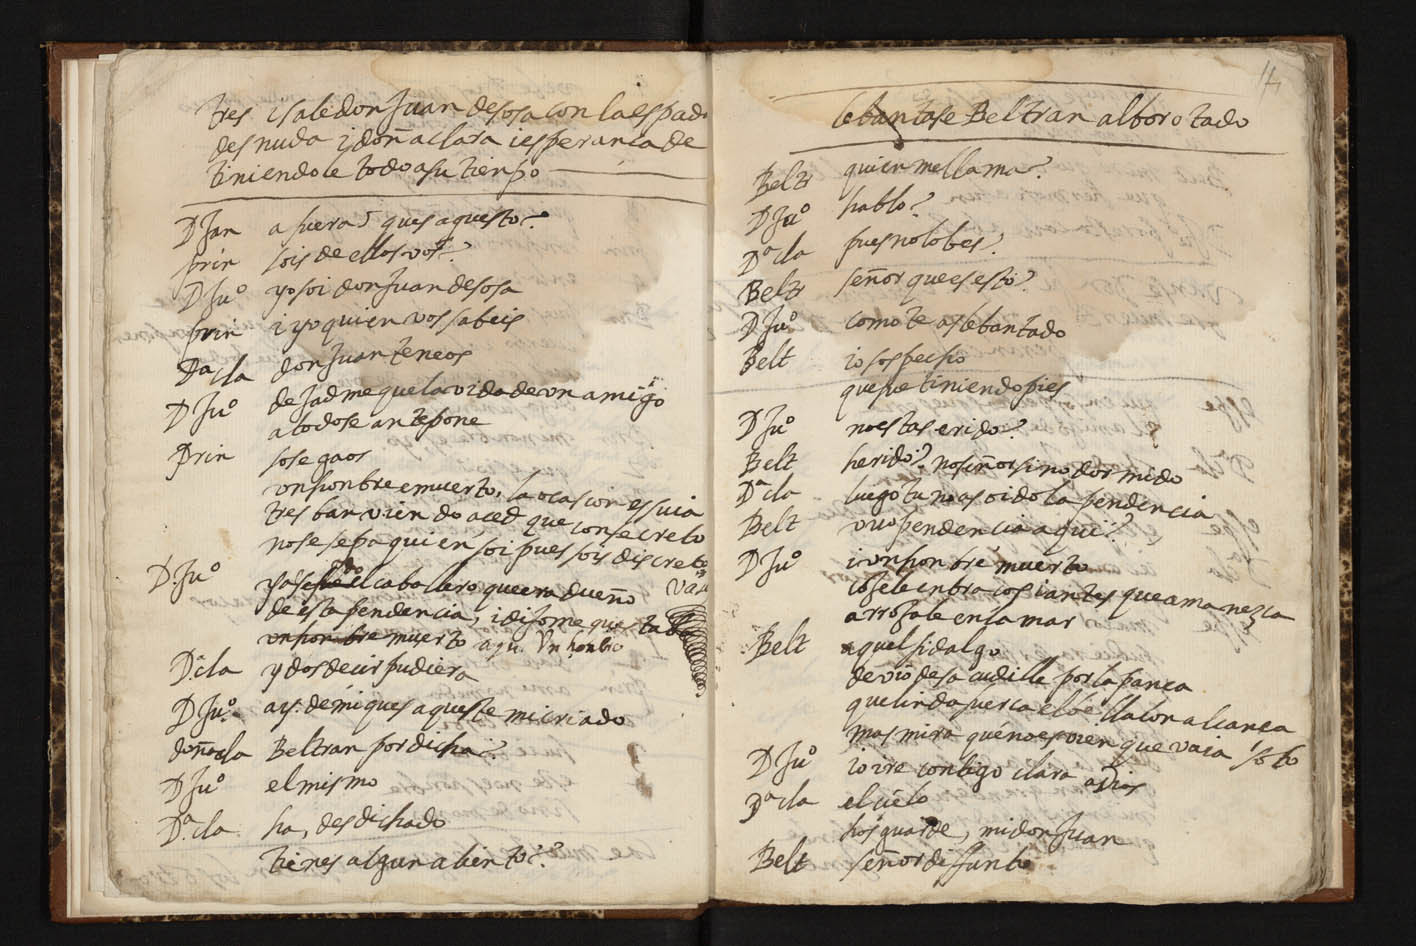 tres i sale don Juan de sosa con la espada
desnuda i doña clara i esperança de
tiniendole todo a su tienpo
D Jua a fuera ques aquesto?
prin sois de ellos vos?
D Juº yo soi don Juan de sosa
prin i yo quien vos sabeis
Dª cla don Juan teneos
D Juº dejadme que la vida de un amigo
a todo se antepone
prin sosegaos
un honbre e muerto, la ocasion es suia
tres ban viendo aced que con secreto
no se sepa quien soi pues sois discreto
D. Juº caballero que era dueño
de esta pendencia, i dijome que
un honbre muerto aqui Un honbre
Dª cla y dos decir pudiera
D Juº ay de mi ques aqueste mi criado
doña cla Beltran por dicha?
D Juº el mismo
Dª cla ha, desdichado
tienes algun aliento?
14
lebantase Beltran alborotado
Belt quien me llama?
D Juº hablo?
Dª cla pues no lo bes?
Belt señor que es esto?
D Juº como te as lebantado
Belt io sospecho
que tiniendo pies
D Juº no estas erido?
Belt herido? no señor sino dormido
Dª cla luego tu no as oido la pendencia
Belt vuo pendencia aqui?
D Juº i un honbre muerto
i antes que amanezca
arrojale en la mar
Belt aquel hidalgo
deuio de sacudille por la panza
que linda fuerça el alcança
mas mira que no es bien que vaia solo
D Juº io ire contigo clara adios
Dª cla el cielo
hos guarde, mi don Juan
Belt señor difunto